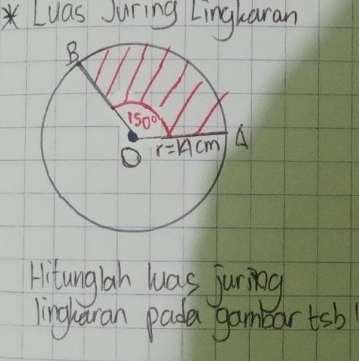 * Luas Juring Lingkaran
B
150°
O r=14cm A
Hitunglah luas juring
lingkaran pada gambar tsb!